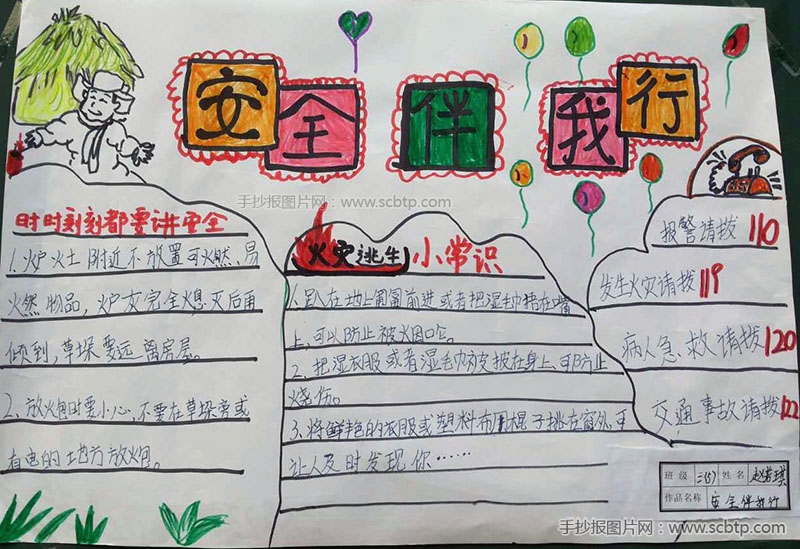 安全伴我行
手抄报图片网：www.scbtp.com
时时刻刻都要讲安全
1.炉火土附近不放置可火然、易
火然物品，炉灰完全熄灭后再
倾到，草垛要远离房屋。
2、放火包时要小心，不要在草垛旁或
有电的地方放火包。
火灾逃生小常识
1.趴在地上匍匐前进或者把湿毛巾捂在嘴
上,可以防止被火因呛。
2、把湿衣服或者湿毛巾被披在身上,可防止
烧伤。
3.将鲜艳的衣服或塑料布用棍子挑在窗外,可
让人及时发现你……
报警请拨110
发生火灾请拨119
病人急救请拨120
交通事故请拨122
班级 三(5) 姓名 赵若琪
作品名称 安全伴我行
手抄报图片网：www.scbtp.com